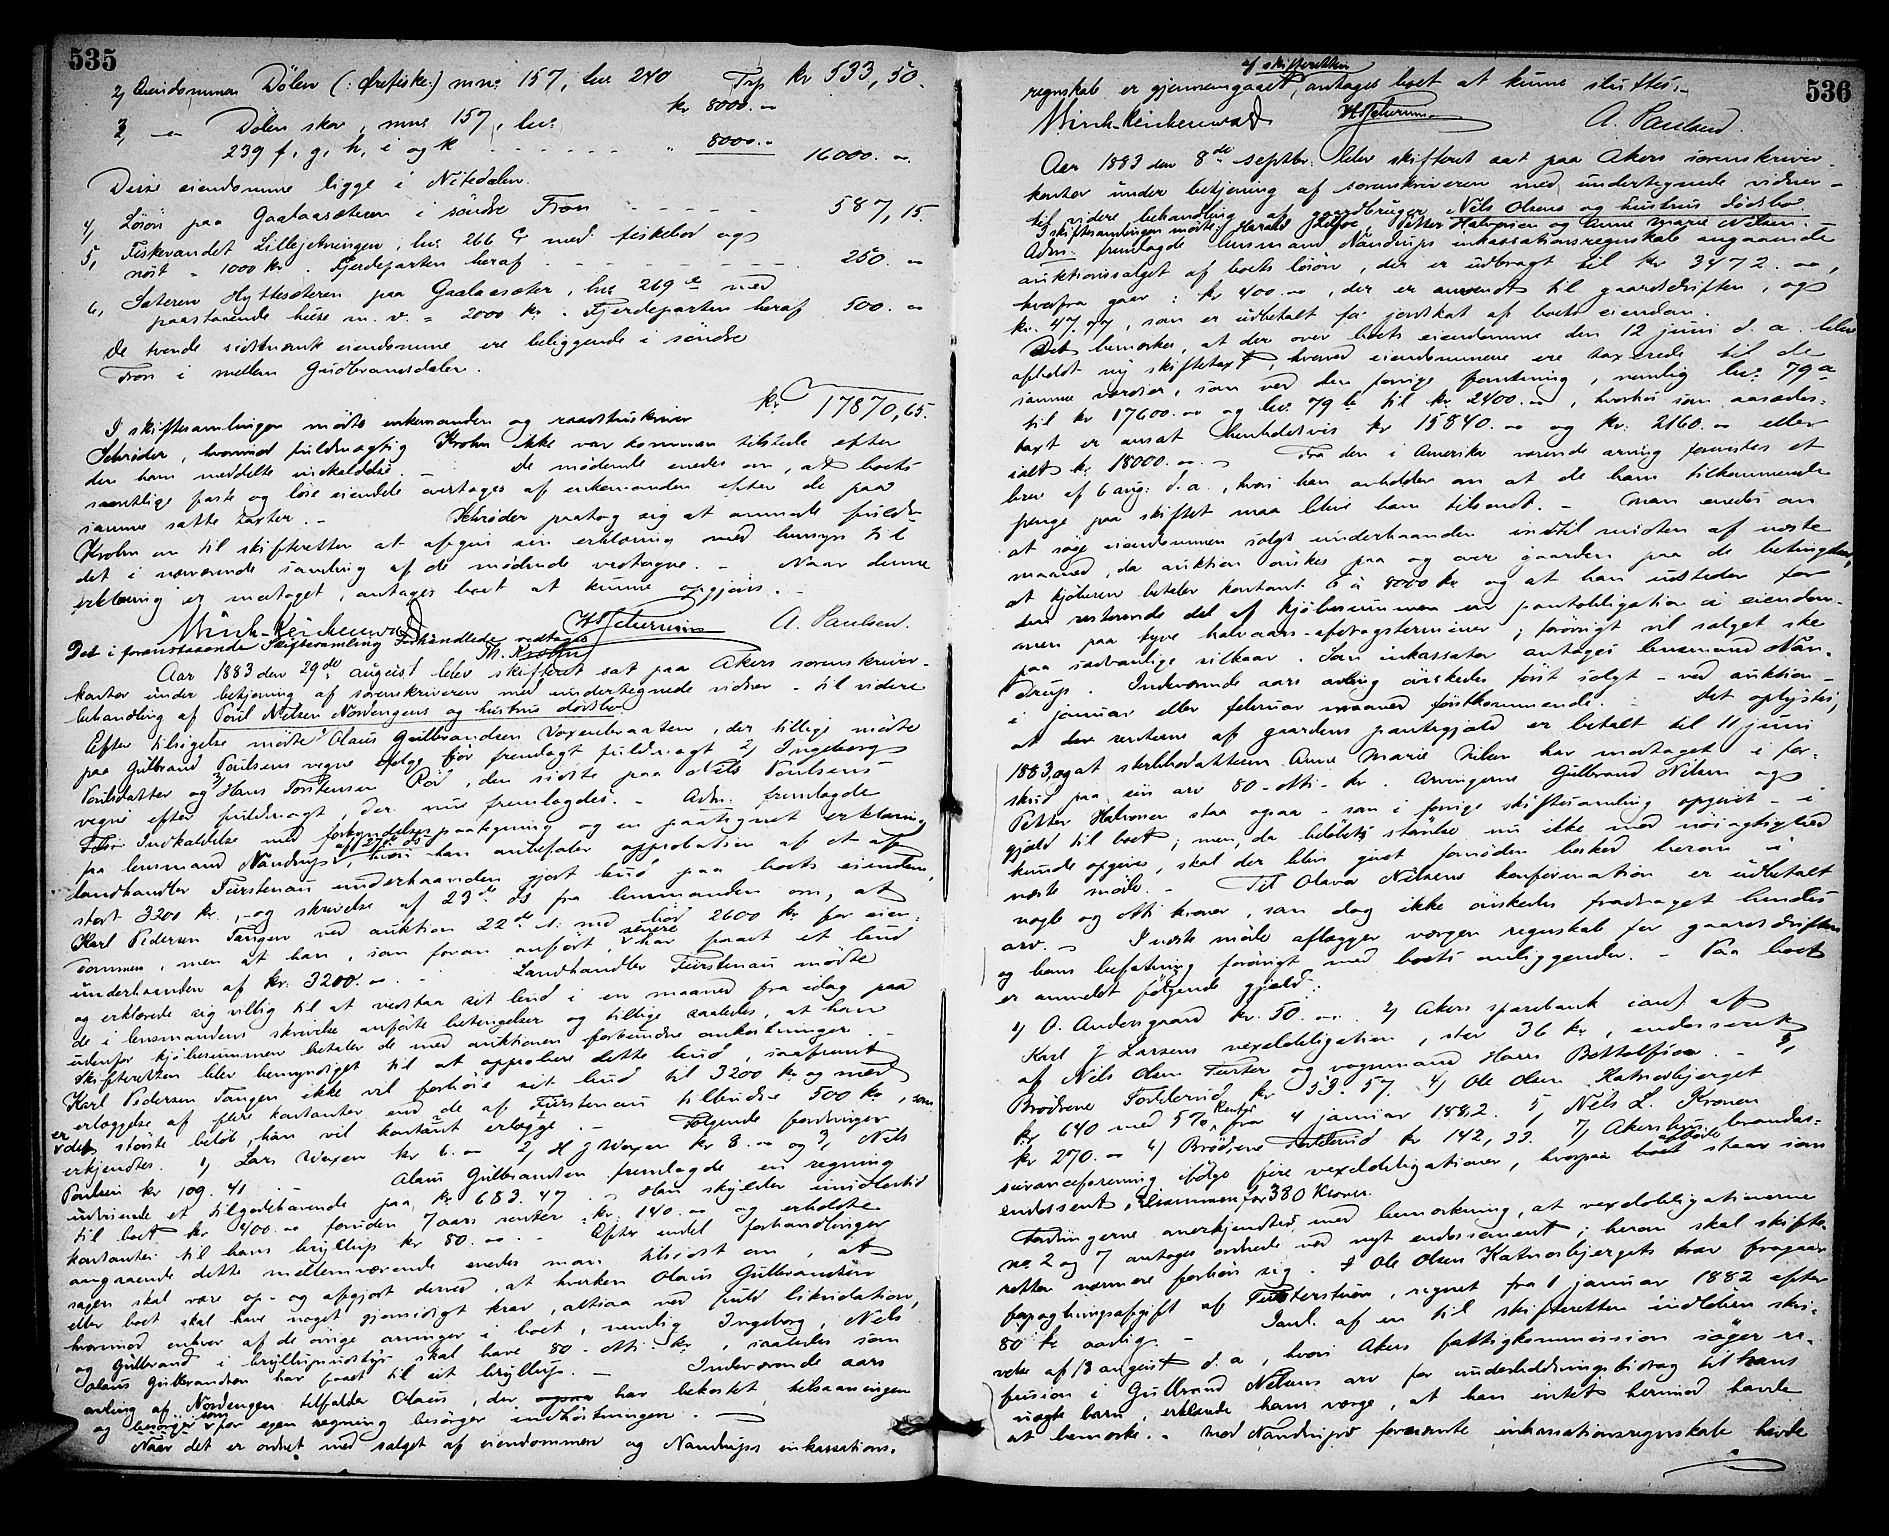 535
2, Eiendommen Dølen (: ørefiske:) mno: 157, lno 240 Trp. kr 533,50.
3, — Dølen skov, mno 157, lno: kr. 8000. "
239 f, g, h, i og k - - - - - " 8000. " 16000. "
Disse eiendomme ligge i Nitedalen.
4, Løsøre paa Gaalaasæteren i søndre Fron - - - - - 587,15.
5, Fiskevandet Lillejetningen, lno 266 c med fiskebod og
nøst = 1000 kr. Fjerdeparten heraf - - - - - - 250. "
6, Sæteren Hyttesæteren paa Gaalaasæter, lno 269 e med
paastaaende huse m. v. = 2000 kr. Fjerdeparten heraf 500. "
De tvende sidstnævnte eiendomme ere beliggende i søndre
Fron i mellem Gudbrandsdalen.
kr 17870,65.
I skiftesamlingen mødte enkemanden og raadstuskriver
Schrøder, hvorimod fuldmægtig Krohn ikke var kommen tilstede efter
den ham meddelte indkaldelse. — De mødende enedes om, at boets
samtlige faste og løse eiendele overtages af enkemanden efter de paa
samme satte taxter. — Schrøder paatog sig at anmode fuldm.
Krohn om til skifteretten at afgive sin erklæring med hensyn til
det i nærværende samling af de mødende vedtagne. — Naar denne
erklæring er modtaget, antages boet at kunne opgjøres. —
Minch-Reichenwald A. Paulsen.
Det i foranstaaende Skiftesamling Forhandlede vedtages
Th. Krohn
Aar 1883 den 29de august blev skifteret sat paa Akers sorenskriver-
kontor under betjening af sorenskriveren med undertegnede vidner – til videre
behandling af Poul Nilsen Nordengens og hustrus dødsbo
Efter tilsigelse mødte 1) Olaus Gulbrandsen Voxenbraaten, der tillige mødte
paa Gulbrand Poulsens vegne ifølge før fremlagt fuldmagt 2) Ingeborg
Poulsdatter og 3) Hans Torstensen Rød, den sidste paa Nils Poulsens
vegne efter fuldmagt, der nu fremlagdes. — Adm. fremlagde
Indkaldelse med forkyndelsespaategning og en paategnet erklæring
fra lensmand Nandrup af 27de ds hvori han anbefaler approbation af et af
landhandler Fürstenau underhaanden gjort bud paa boets eiendom,
stort 3200 kr, – og skrivelse af 23de ds fra lensmanden om, at
Karl Pedersen Tangen ved auktion 22de s. md bød 2600 kr for eien-
dommen, men at han, som foran anført, senere har faaet et bud
underhaanden af kr. 3200. " — Landhandler Fürstenau mødte
og erklærede sig villig til at vedstaa sit bud i en maaned fra idag paa
de i lensmandens skrivelse anførte betingelser og tillige saaledes, at han
udenfor kjøbesummen betaler de med auktionen forbundne omkostninger. —
Skifteretten blev bemyndiget til at approbere dette bud, saafremt
Karl Pedersen Tangen ikke vil forhøie sit bud til 3200 kr og med
erlæggelse af flere kontanter end de af Fürstenau tilbudne 500 kr, som
er det største beløb, han vil kontant erlægge. — Følgende fordringer
erkjendtes. 1) Lars Voxen kr 6. " 2) H J Voxen kr 8. " og 3) Nils
Poulsen kr 109. 41 Olaus Gulbrandsen fremlagde en regning
udvisende et tilgodehavende paa kr 683. 47. Han skylder imidlertid
til boet kr 400. " foruden 7 aars renter = kr. 140. " og erholdte
kontanter til hans bryllup kr 80. " — Efter endel forhandlinger
angaaende dette mellemværende enedes man tilsidst om, at
sagen skal være op- og afgjort derved, at hverken Olaus Gulbrandsen
eller boet skal have noget gjensidigt krav, altsaa ved fuld likvidation,
hvorimod enhver af de øvrige arvinger i boet, nemlig Ingeborg, Nils
og Gulbrand i bryllupsudstyr skal have 80 – otti – kr, saaledes som
Olaus Gulbrandsen har faaet til sit bryllup. — Indeværende aars
avling af Nordengen tilfalder Olaus, der har bekostet tilsaaningen
og som for egen regning besørger indhøstningen. —
Naar det er ordnet med salget af eiendommen og Nandrups inkassations-
536
af skifteretten
regnskab er gjennemgaaet, antages boet at kunne sluttes. —
Minch-Reichenwald A. Paulsen.
Aar 1883 den 8de septbr. blev skifteret sat paa Akers sorenskriver-
kontor under betjening af sorenskriveren med undertegnede vidner –
til videre behandling af gaardbruger Nils Olsens og hustrus dødsbo
I skiftesamlingen mødte: Harald, Petter Halvorsen og Anne Marie Nilsen.
Adm. fremlagde lensmand Nandrups inkassationsregnskab angaaende
auktionssalget af boets løsøre, der er udbragt til kr 3472. ",
hvorfra gaar: kr 400. ", der er anvendt til gaardsdriften, og
kr. 47.77, som er udbetalt for jordskat af boets eiendom.
Det bemærkes, at der over boets eiendomme den 12 juni d. a. blev
afholdt ny skiftetaxt, hvorved eiendommene ere taxerede til de
samme værdier, som ved den forrige forretning, nemlig lno: 79 a
til kr 17600. " og lno 79 b til kr 2400. ", hvorhos som aasædes-
taxt er ansat henholdsvis kr 15840. " og kr. 2160. " eller
ialt kr 18000. " — Fra den i Amerika værende arving forevistes et
brev af 6 aug: d. a., hvori han anholder om at de ham tilkommende
penge paa skiftet maa blive ham tilsendt. — Man enedes om
at søge eiendommen solgt underhaanden indtil midten af næste
maaned, da auktion ønskes paa og over gaarden paa de betingelser,
at kjøberen betaler kontant 6 à 8000 kr og at han udsteder for
den resterende del af kjøbesummen en pantobligation i eiendom-
men paa tyve halvaars-afdragsterminer; forøvrigt vil salget ske
paa sædvanlige vilkaar. Som inkassator antages lensmand Nan-
drup. Indeværende aars avling ønskedes først solgt – ved auktion –
i januar eller februar maaned førstkommende. — Det oplystes,
at der renterne af gaardens pantegjæld er betalt til 11 juni
1883, og at stedsdatteren Anne Marie Nilsen har modtaget i for-
skud paa sin arv 80 – otti – kr. Arvingerne Gulbrand Nilsen og
Petter Halvorsen staa ogsaa – som i forrige skiftesamling opgivet – i
gjæld til boet; men, da beløbets størrelse nu ikke med nøiagtighed
kunde opgives, skal der blive givet fornøden besked herom i
næste møde. — Til Olava Nilsens konfirmation er udbetalt
nogle og otti kroner, som dog ikke ønskedes fradraget hendes
arv. — I næste møde aflægger værgen regnskab for gaardsdriften
og hans befatning forøvrigt med boets anliggender. — Paa boet
er anmeldt følgende gjæld:
1) O. Andersgaard kr. 50. " 2) Akers sparebank ianl. af
Karl J Larsens vexelobligation, stor 36 kr, endosseret
af Nils Olsen Furter og vognmand Hans Bottolfsen. — 3)
Brødrene Forterud kr 53. 57. 4) Ole Olsen Katnosbjerget
kr 640 med 5 % rente fra 4 januar 1882. 5) Nils L. Kronen
kr 270. " 6) Brødrene Forterud kr 142,33. 7) Akersbyns brandas-
suranceforening ifølge fire vexelobligationer, hvorpaa afdøde staar som
endossent, tilsammen for 380 kroner.
Fordringerne anerkjendtes, med bemærkning, at vexelobligationerne
no 2 og 7 antages ordnede ved nyt endossement; herom skal skifte-
retten nærmere forhøre sig. I Ole Olsen Katnosbjergets krav fragaar
forpagtningsafgift af Furterstuen, regnet fra 1 januar 1882 efter
80 kr aarlig. — Ianl. af en til skifteretten indløben skri-
velse af 13 august d. a., hvori Akers fattigkommission søger re-
fusion i Gulbrand Nilsens arv for underholdningsbidrag til hans
uægte barn, erklærede hans værge, at han intet hermod havde
at bemærke. — Mod Nandrups foranførte inkassationsregnskab havde